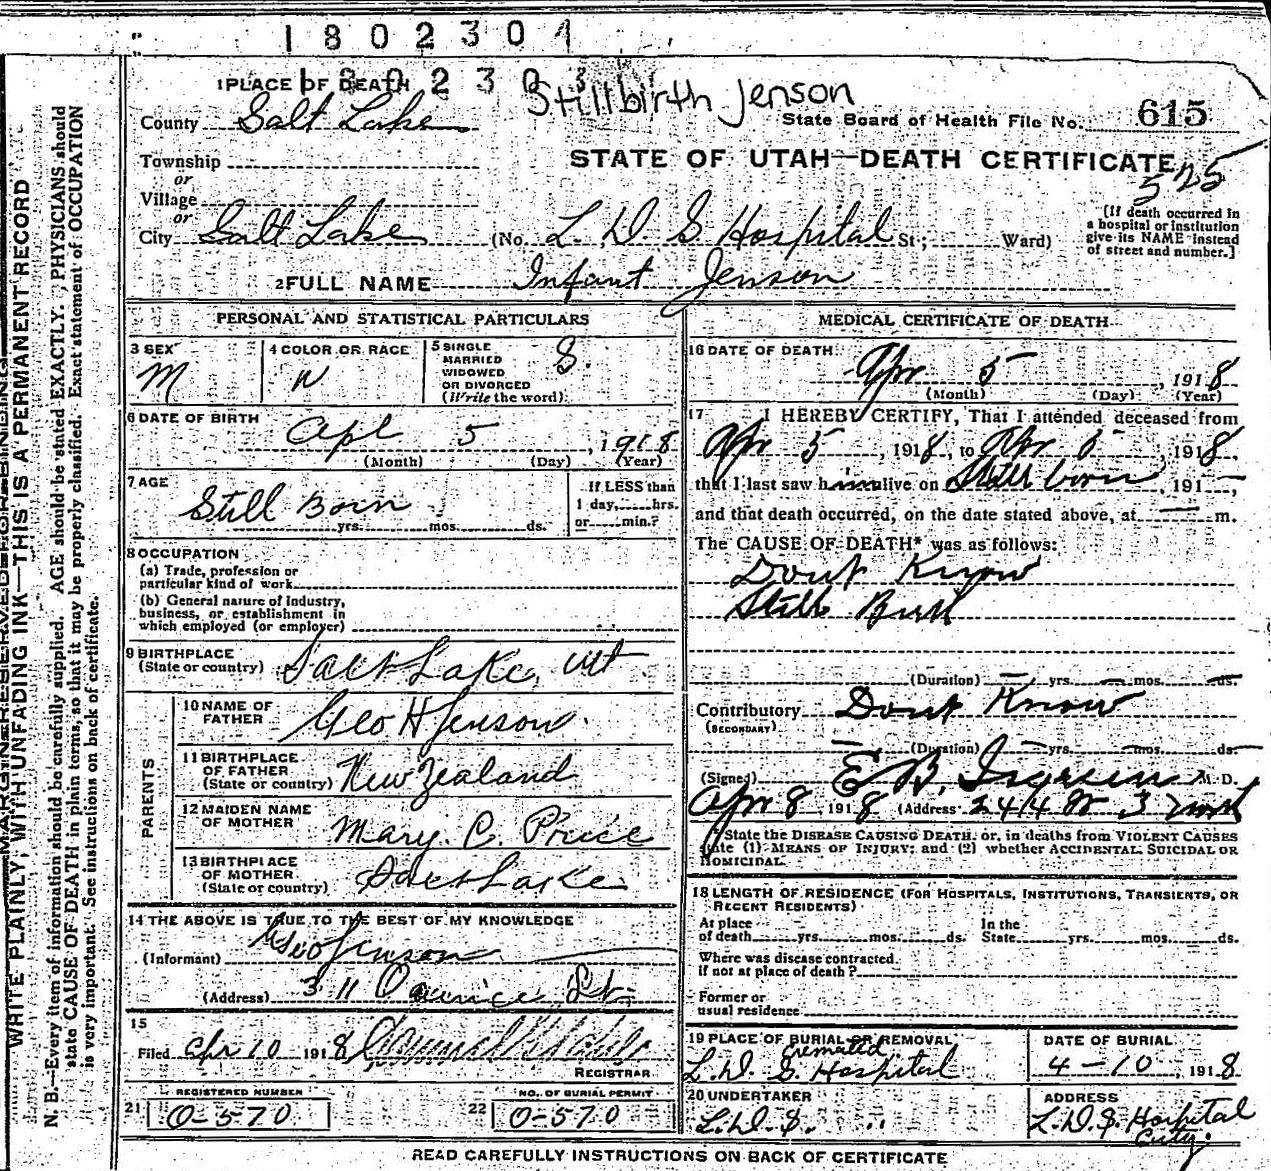 1802304
180230
Stillbirth Jenson
1 PLACE OF DEATH
County Salt Lake
State Board of Health File No. 615
Township
or
STATE OF UTAH—DEATH CERTIFICATE
525
Village
or
City Salt Lake (No. L. D. S Hospital St; Ward)
[If death occurred in
a hospital or institution
give its NAME instead
of street and number.]
2 FULL NAME Infant Jenson
PERSONAL AND STATISTICAL PARTICULARS
3 SEX
M
4 COLOR OR RACE
W
5 SINGLE
MARRIED
WIDOWED
OR DIVORCED
(Write the word)
S.
6 DATE OF BIRTH
Apl 5, 1918
(Month) (Day) (Year)
7 AGE
Still Born
yrs. mos. ds.
If LESS than
1 day, hrs.
or min.?
8 OCCUPATION
(a) Trade, profession or
particular kind of work
(b) General nature of industry,
business, or establishment in
which employed (or employer)
9 BIRTHPLACE
(State or country) Salt Lake, Ut
PARENTS
10 NAME OF
FATHER Geo H Jenson.
11 BIRTHPLACE
OF FATHER
(State or country) New Zealand
12 MAIDEN NAME
OF MOTHER Mary. C. Price
13 BIRTHPLACE
OF MOTHER
(State or country) Salt Lake
14 THE ABOVE IS TRUE TO THE BEST OF MY KNOWLEDGE
(Informant) Geo Jenson
(Address) 311 St.
15
Filed Apr 10 1918
REGISTRAR
REGISTERED NUMBER
21 O-570
NO. OF BURIAL PERMIT
22 O-570
MEDICAL CERTIFICATE OF DEATH
16 DATE OF DEATH
Apr 5, 1918
(Month) (Day) (Year)
17 I HEREBY CERTIFY, That I attended deceased from
Apr 5, 1918, to Apr 5, 1918,
that I last saw him alive on Still born, 191
and that death occurred, on the date stated above, at m.
The CAUSE OF DEATH* was as follows:
Dont Know
Still Birth
(Duration) yrs. mos. ds.
Contributory Dont Know
(SECONDARY)
(Duration) yrs. mos. ds.
(Signed) E B, M. D.
Apr 8, 1918 (Address
*State the DISEASE CAUSING DEATH, or, in deaths from VIOLENT CAUSES
state (1) MEANS OF INJURY; and (2) whether ACCIDENTAL SUICIDAL OR
HOMICIDAL.
18 LENGTH OF RESIDENCE (FOR HOSPITALS, INSTITUTIONS, TRANSIENTS, OR
RECENT RESIDENTS)
At place
of death yrs. mos. ds.
In the
State yrs. mos. ds.
Where was disease contracted.
if not at place of death?
Former or
usual residence
19 PLACE OF BURIAL OR REMOVAL
Cremated
L. D. S. Hospital
DATE OF BURIAL
4-10, 1918
20 UNDERTAKER
L. D. S. " "
ADDRESS
L. D. S. Hospital
City.
READ CAREFULLY INSTRUCTIONS ON BACK OF CERTIFICATE
MARGIN RESERVED FOR BINDING
WRITE PLAINLY, WITH UNFADING INK—THIS IS A PERMANENT RECORD
N. B.—Every item of information should be carefully supplied. AGE should be stated EXACTLY. PHYSICIANS should
state CAUSE OF DEATH in plain terms, so that it may be properly classified. Exact statement of OCCUPATION
is very important. See instructions on back of certificate.